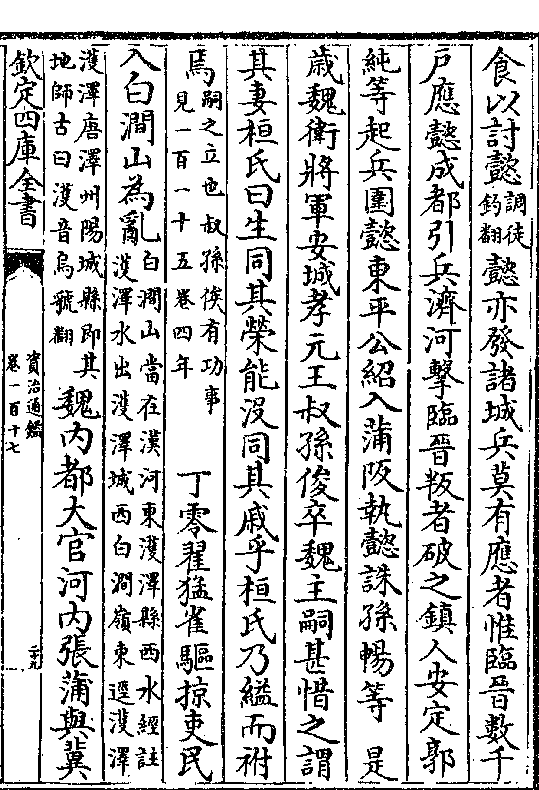 食以討懿調徒釣翻懿亦發諸城兵莫有應者惟臨晉數千
戶應懿成都引兵濟河擊臨晉叛者破之鎮人安定郭
純等起兵圍懿東平公紹入蒲阪執懿誅孫暢等 是
歲魏衛將軍安城孝元王叔孫俊卒魏主嗣甚惜之謂
其妻桓氏曰生同其榮能沒同其戚乎桓氏乃縊而祔
焉嗣之立也叔孫俟有功事見一百一十五卷四年 丁零翟猛雀驅掠吏民
入白澗山為亂白澗山當在漢河東濩澤縣西水經註濩澤水出濩澤城西白澗嶺東逕濩澤
濩澤唐澤州陽城縣即其地師古曰濩音烏虢翻 魏內都大官河內張蒲與冀
欽定四庫全書
資治通鑑
卷一百十七
二十九